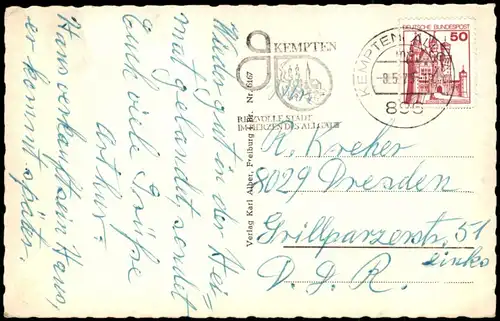 Wieder gut in der Hei-
mat gelandet sendet
Euch viele Grüße
Arthur
Hans verkauft sein Haus,
er kommt später.
Verlag Karl Alber, Freiburg i. Br. Nr. 6167
KEMPTEN
REIZVOLLE STADT
IM HERZEN DES ALLGÄU
KEMPTEN
896
DEUTSCHE BUNDESPOST
50
A. Kreher
8029 Dresden
Grillparzerstr. 51
links
D.D.R.